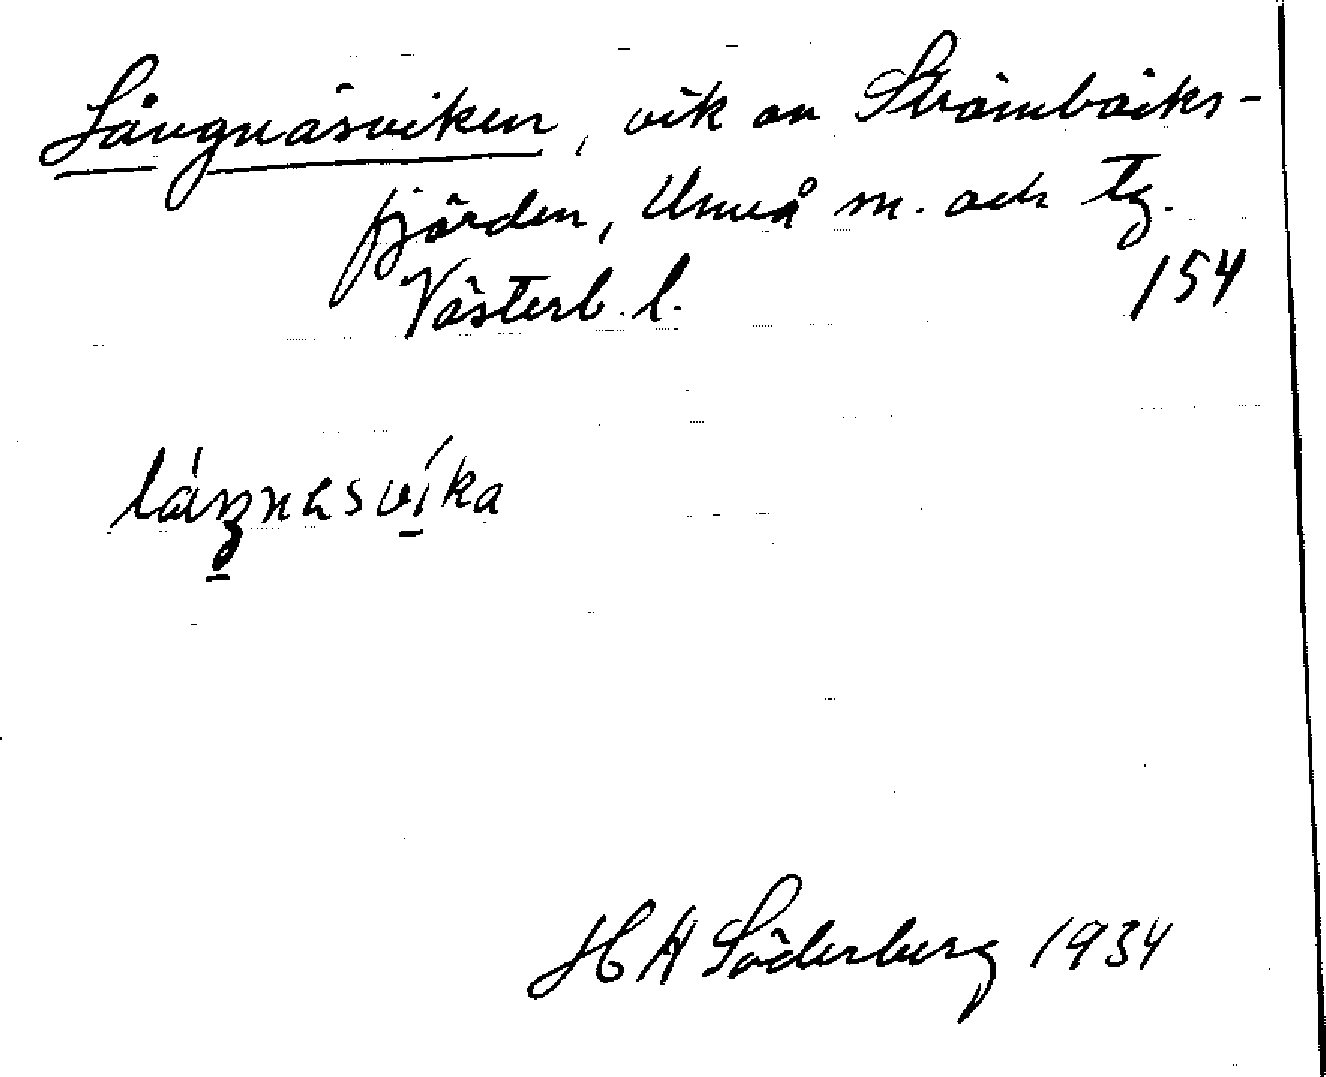 Långnäsviken, vik av Strömbäcks-
fjärden, Umeå sn. och tg.
Västerb. l. 154
H A Söderberg 1934